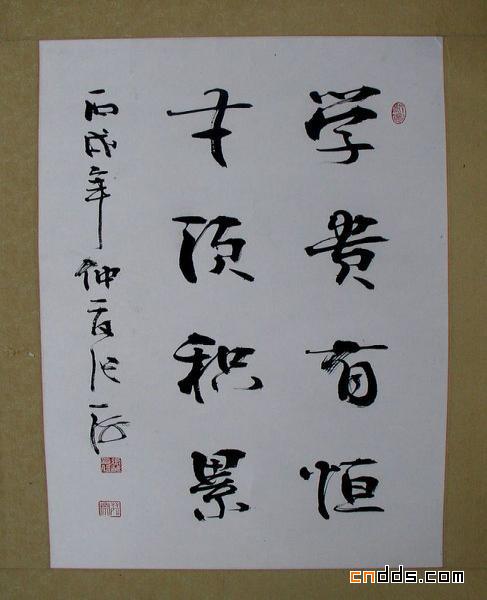 学贵有恒
才须积累
丙戌年仲夏
cndds.com